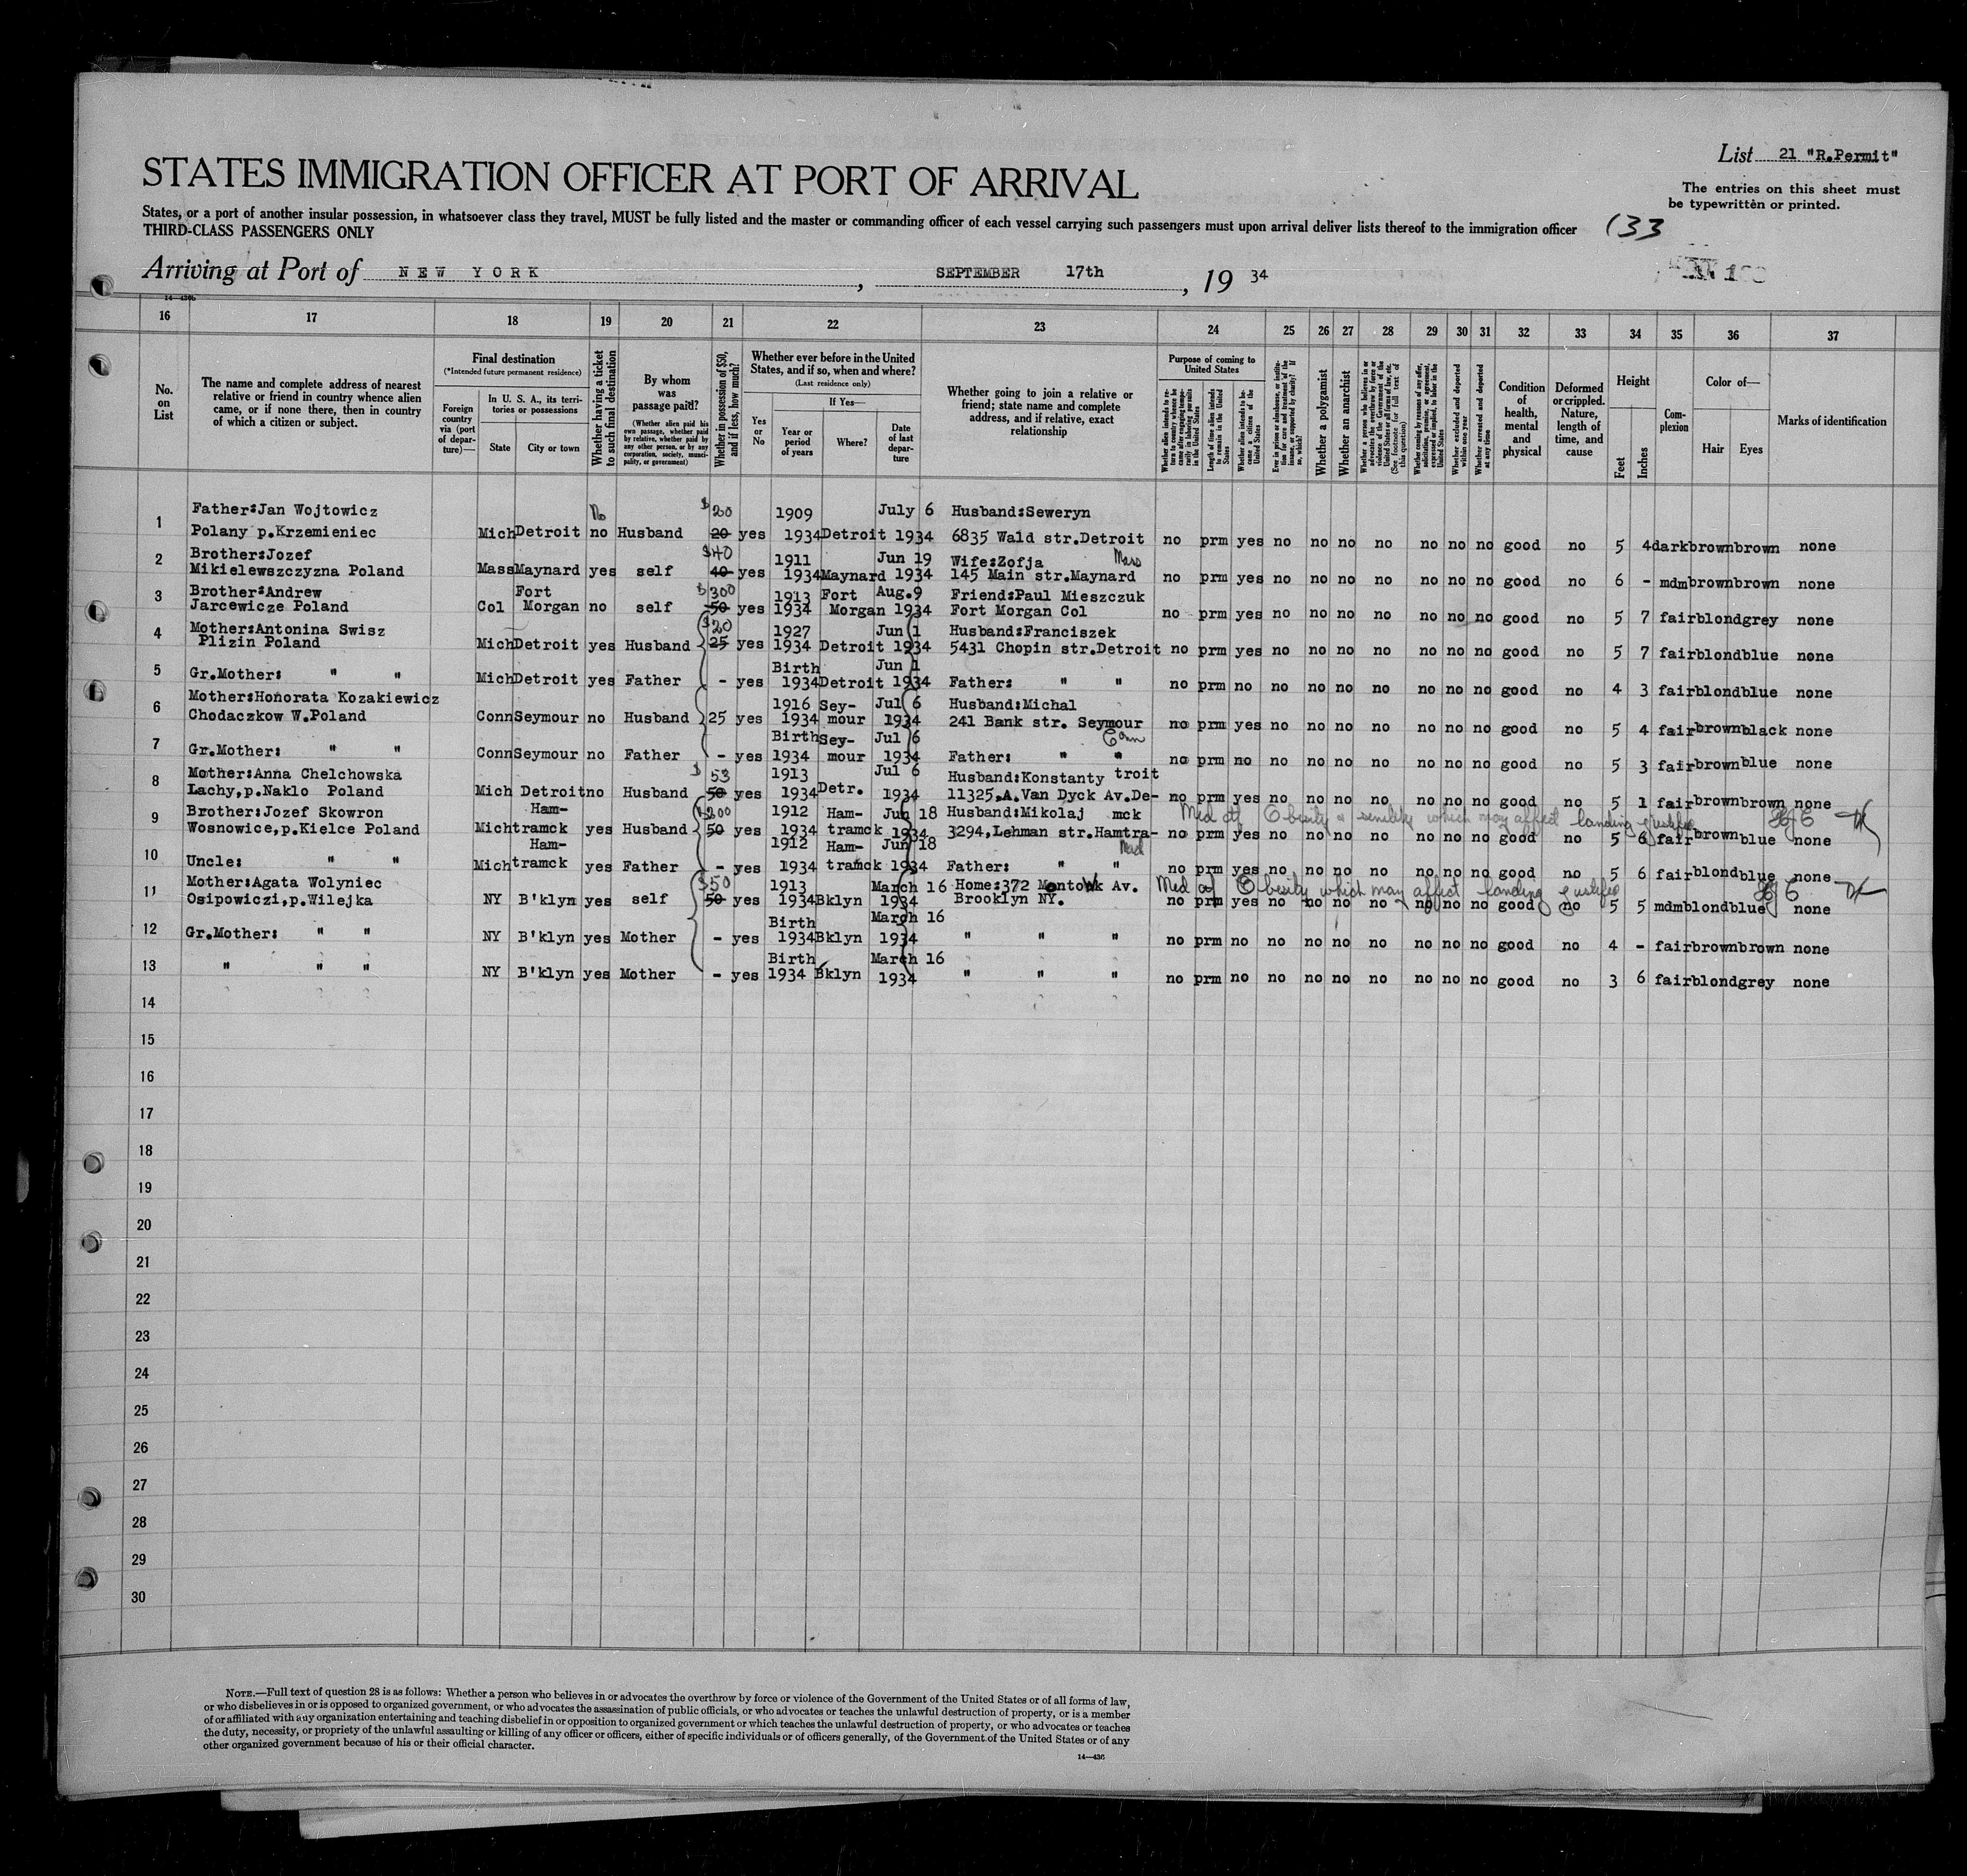 List 21 "R.Permit"
STATES IMMIGRATION OFFICER AT PORT OF ARRIVAL
The entries on this sheet must
be typewritten or printed.
States, or a port of another insular possession, in whatsoever class they travel, MUST be fully listed and the master or commanding officer of each vessel carrying such passengers must upon arrival deliver lists thereof to the immigration officer
THIRD-CLASS PASSENGERS ONLY
133
Arriving at Port of NEW YORK, SEPTEMBER 17th, 19 34
14—436b
16 17 18 19 20 21 22 23 24 25 26 27 28 29 30 31 32 33 34 35 36 37
No. on List
The name and complete address of nearest relative or friend in country whence alien came, or if none there, then in country of which a citizen or subject.
Final destination
(*Intended future permanent residence)
Foreign country via (port of departure)—
In U. S. A., its territories or possessions
State
City or town
Whether having a ticket to such final destination
By whom was passage paid?
(Whether alien paid his own passage, whether paid by relative, whether paid by any other person, or by any corporation, society, municipality, or government)
Whether in possession of $50, and if less, how much?
Whether ever before in the United States, and if so, when and where?
(Last residence only)
Yes or No
If Yes—
Year or period of years
Where?
Date of last departure
Whether going to join a relative or friend; state name and complete address, and if relative, exact relationship
Purpose of coming to United States
Whether alien intends to return to country whence he came after engaging temporarily in laboring pursuits in the United States
Length of time alien intends to remain in the United States
Whether alien intends to become a citizen of the United States
Ever in prison or almshouse, or institution for care and treatment of the insane, or supported by charity? If so, which?
Whether a polygamist
Whether an anarchist
Whether a person who believes in or advocates the overthrow by force or violence of the Government of the United States or all forms of law, etc. (See footnote for full text of this question)
Whether coming by reasons of any offer, solicitation, promise, or agreement, expressed or implied, to labor in the United States
Whether excluded and deported within one year
Whether arrested and deported at any time
Condition of health, mental and physical
Deformed or crippled. Nature, length of time, and cause
Height
Feet
Inches
Complexion
Color of—
Hair
Eyes
Marks of identification
1 Father:Jan Wojtowicz No $20 1909 July 6 Husband:Seweryn
Polany p.Krzemieniec Mich Detroit no Husband 20 yes 1934 Detroit 1934 6835 Wald str.Detroit no prm yes no no no no no no no good no 5 4 dark brown brown none
2 Brother:Jozef $40 1911 Jun 19 Wife:Zofja Mass
Mikielewszczyzna Poland Mass Maynard yes self 40 yes 1934 Maynard 1934 145 Main str.Maynard no prm yes no no no no no no no good no 6 - mdm brown brown none
3 Brother:Andrew Fort $300 1913 Fort Aug.9 Friend:Paul Mieszczuk
Jarcewicze Poland Col Morgan no self 50 yes 1934 Morgan 1934 Fort Morgan Col no prm yes no no no no no no no good no 5 7 fair blond grey none
4 Mother:Antonina Swisz $20 1927 Jun 1 Husband:Franciszek
Plizin Poland Mich Detroit yes Husband 25 yes 1934 Detroit 1934 5431 Chopin str.Detroit no prm yes no no no no no no no good no 5 7 fair blond blue none
5 Birth Jun 1
Gr.Mother: " " Mich Detroit yes Father - yes 1934 Detroit 1934 Father: " " no prm no no no no no no no no good no 4 3 fair blond blue none
6 Mother:Honorata Kozakiewicz 1916 Sey- Jul 6 Husband:Michal
Chodaczkow W.Poland Conn Seymour no Husband 25 yes 1934 mour 1934 241 Bank str. Seymour no prm yes no no no no no no no good no 5 4 fair brown black none
7 Birth Sey- Jul 6 Conn
Gr.Mother: " " Conn Seymour no Father - yes 1934 mour 1934 Father: " " no prm no no no no no no no no good no 5 3 fair brown blue none
8 Mother:Anna Chelchowska $ 53 1913 Jul 6 Husband:Konstanty troit
Lachy,p.Naklo Poland Mich Detroit no Husband 50 yes 1934 Detr. 1934 11325.A.Van Dyck Av.De- no prm yes no no no no no no no good no 5 1 fair brown brown none
9 Brother:Jozef Skowron Ham- $200 1912 Ham- Jun 18 Husband:Mikolaj mck Med ctf Obesity & senility which may affect landing justified
Wosnowice,p.Kielce Poland Mich tramck yes Husband 50 yes 1934 tramck 1934 3294,Lehman str.Hamtra- no prm yes no no no no no no no good no 5 6 fair brown blue none
10 Ham- 1912 Ham- Jun 18
Uncle: " " Mich tramck yes Father - yes 1934 tramck 1934 Father: " " no prm yes no no no no no no no good no 5 6 fair blond blue none
11 Mother:Agata Wolyniec $50 1913 March 16 Home:372 Montowk Av. Med ctf Obesity which may affect landing justified
Osipowiczi,p.Wilejka NY B'klyn yes self 50 yes 1934 Bklyn 1934 Brooklyn NY. no prm yes no no no no no no no good no 5 5 mdm blond blue none
12 Birth March 16
Gr.Mother: " " NY B'klyn yes Mother - yes 1934 Bklyn 1934 " " " no prm no no no no no no no no good no 4 - fair brown brown none
13 Birth March 16
" " " NY B'klyn yes Mother - yes 1934 Bklyn 1934 " " " no prm no no no no no no no no good no 3 6 fair blond grey none
14
15
16
17
18
19
20
21
22
23
24
25
26
27
28
29
30
NOTE.—Full text of question 28 is as follows: Whether a person who believes in or advocates the overthrow by force or violence of the Government of the United States or of all forms of law,
or who disbelieves in or is opposed to organized government, or who advocates the assassination of public officials, or who advocates or teaches the unlawful destruction of property, or is a member
of or affiliated with any organization entertaining and teaching disbelief in or opposition to organized government or which teaches the unlawful destruction of property, or who advocates or teaches
the duty, necessity, or propriety of the unlawful assaulting or killing of any officer or officers, either of specific individuals or of officers generally, of the Government of the United States or of any
other organized government because of his or their official character.
14—436